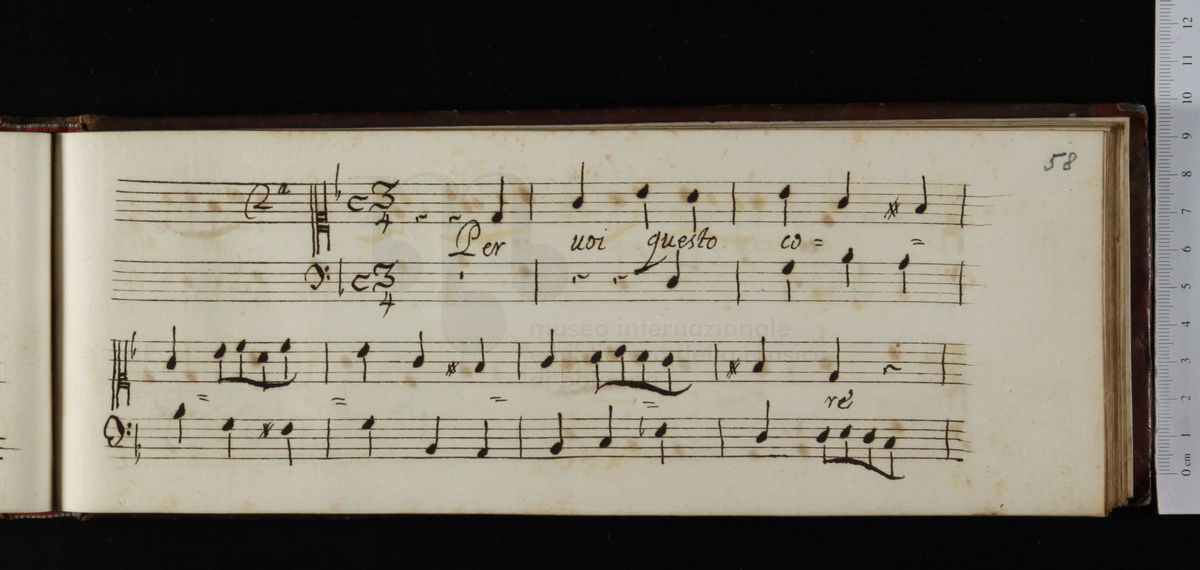 58
2ª
C 3/4
Per uoi questo co= =
C 3/4
museo internazionale
= = = = re
0 cm 1 2 3 4 5 6 7 8 9 10 11 12